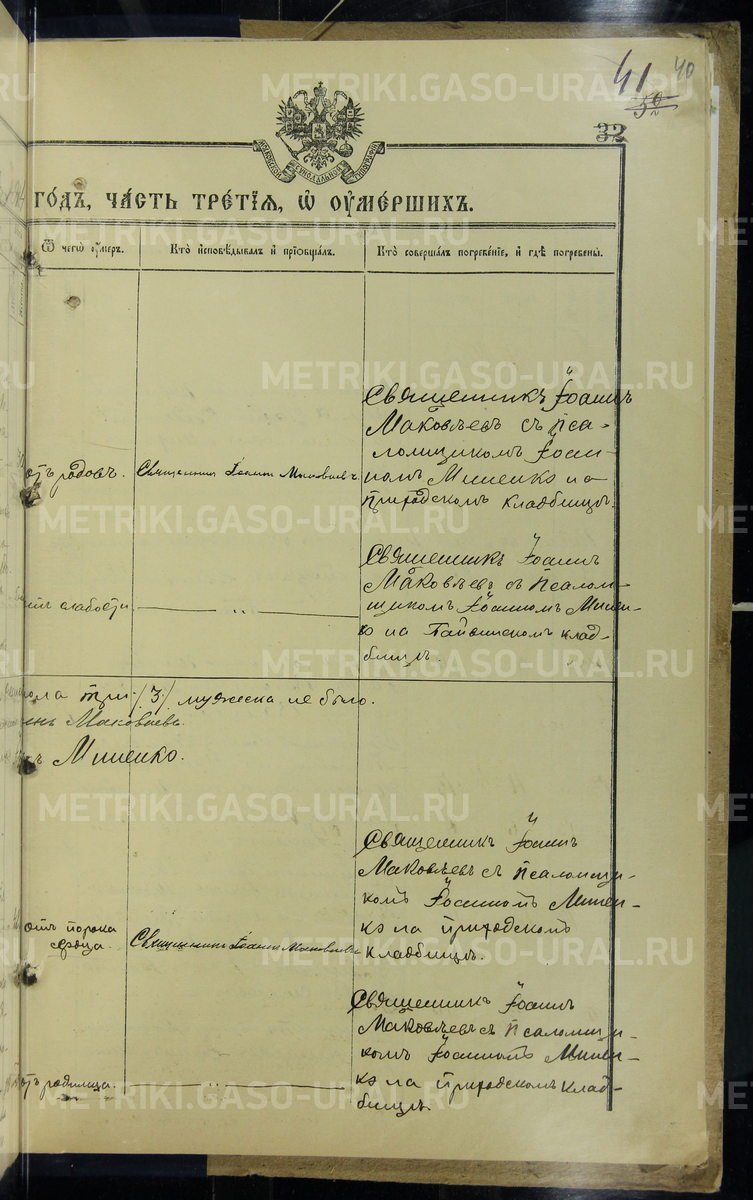 41 40
50
32
годъ, часть третїѧ, ѡ оумершихъ.
Ѿ чегѡ оумеръ.
Кто исповѣдывалъ и прїобщалъ.
Кто совершалъ погребенїе, и гдѣ погребены.
отъ родовъ.
Священникъ Іоаннъ Маковѣевъ.
Священникъ Іоаннъ
Маковѣевъ съ Пса-
ломщикомъ Іоан-
номъ Миненко на
приходскомъ кладбищѣ.
отъ слабости
— „ —
Священникъ Іоаннъ
Маковѣевъ съ Псалом-
щикомъ Іоанномъ Минен-
ко на кклад-
бищѣ.
пола три /3/ мужска не было.
Маковѣевъ
Миненко.
отъ порока
сердца.
Священникъ Іоаннъ Маковѣевъ
Священникъ Іоаннъ
Маковѣевъ съ Псаломщи-
комъ Іоанномъ Минен-
ко на приходскомъ
кладбищѣ.
отъ родимца.
— „ —
Священникъ Іоаннъ
Маковѣевъ съ Псаломщи-
комъ Іоанномъ Минен-
ко на приходскомъ клад-
бищѣ.
METRIKI.GASO-URAL.RU